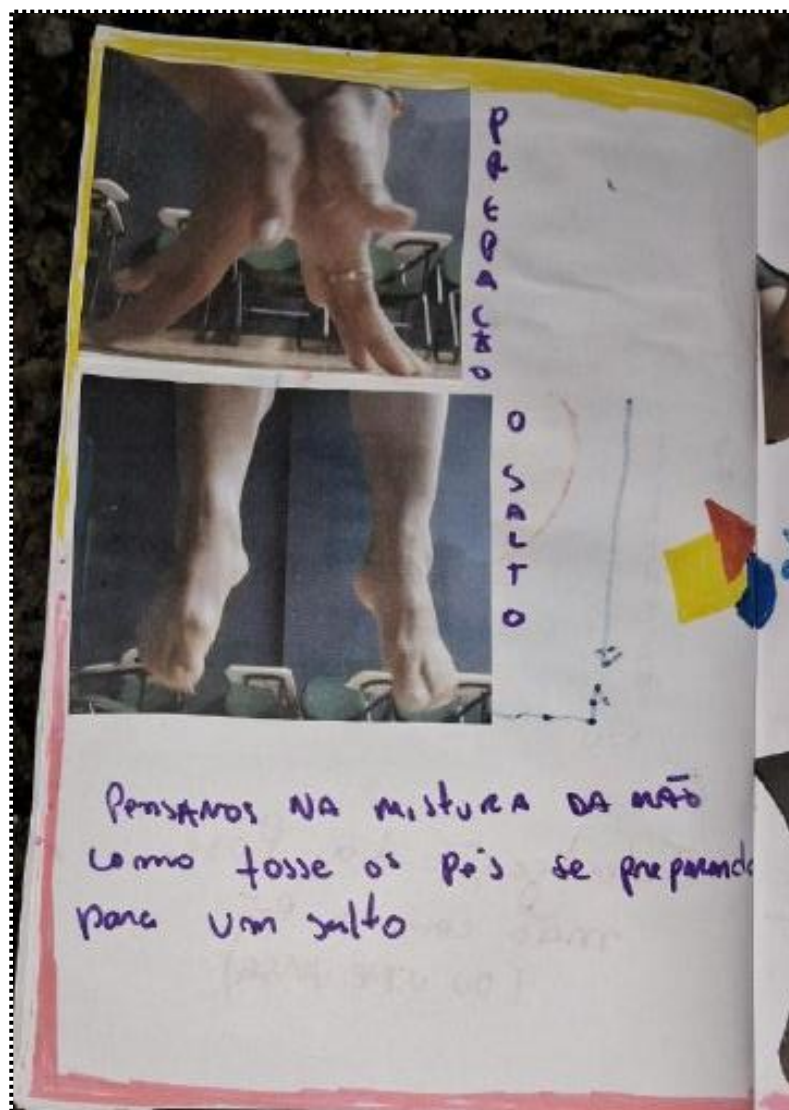 PREPAÇÃO
O SALTO
PENSAMOS NA MISTURA DA MÃO
como fosse os pés se preparando
para um salto